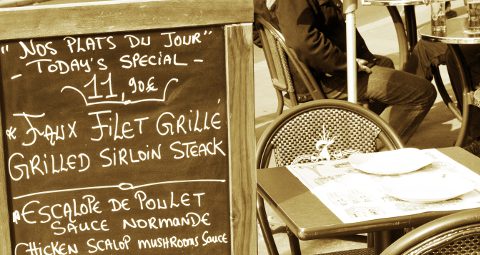 "NOS PLATS DU JOUR"
- TODAY'S SPECIAL -
11,90€
* FAUX FILET GRILLÉ
GRILLED SIRLOIN STEACK
* ESCALOPE DE POULET
SAUCE NORMANDE
CHICKEN SCALOP MUSHROOMS SAUCE